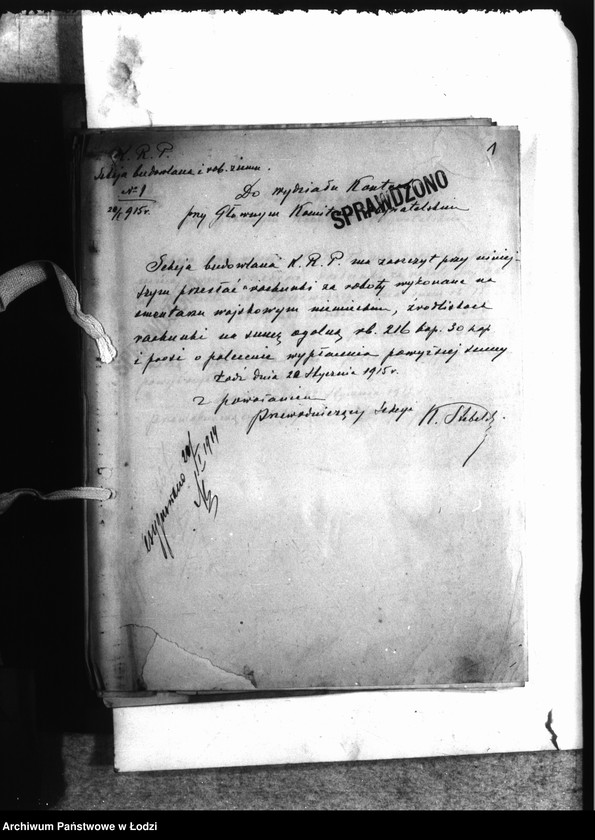 K. R. P.
Sekcja budowlana i rob. ziemn.
1
№ 1
20/I 915 r.
Do wydziału
SPRAWDZONO
przy Głównym
Sekcja budowlana K. R. P. ma zaszczyt przy niniej-
szym przesłać rachunki za roboty wykonane na
cmentarzu wojskowym niemieckim,
rachunki na sumę ogólną rb. 216 kop. 30
i prosi o polecenie wypłacenia powyższej sumy
Łódź dnia 20 Stycznia 1915 r.
z poważaniem
Przewodniczący Sekcji K.
20/I 1914
Archiwum Państwowe w Łodzi